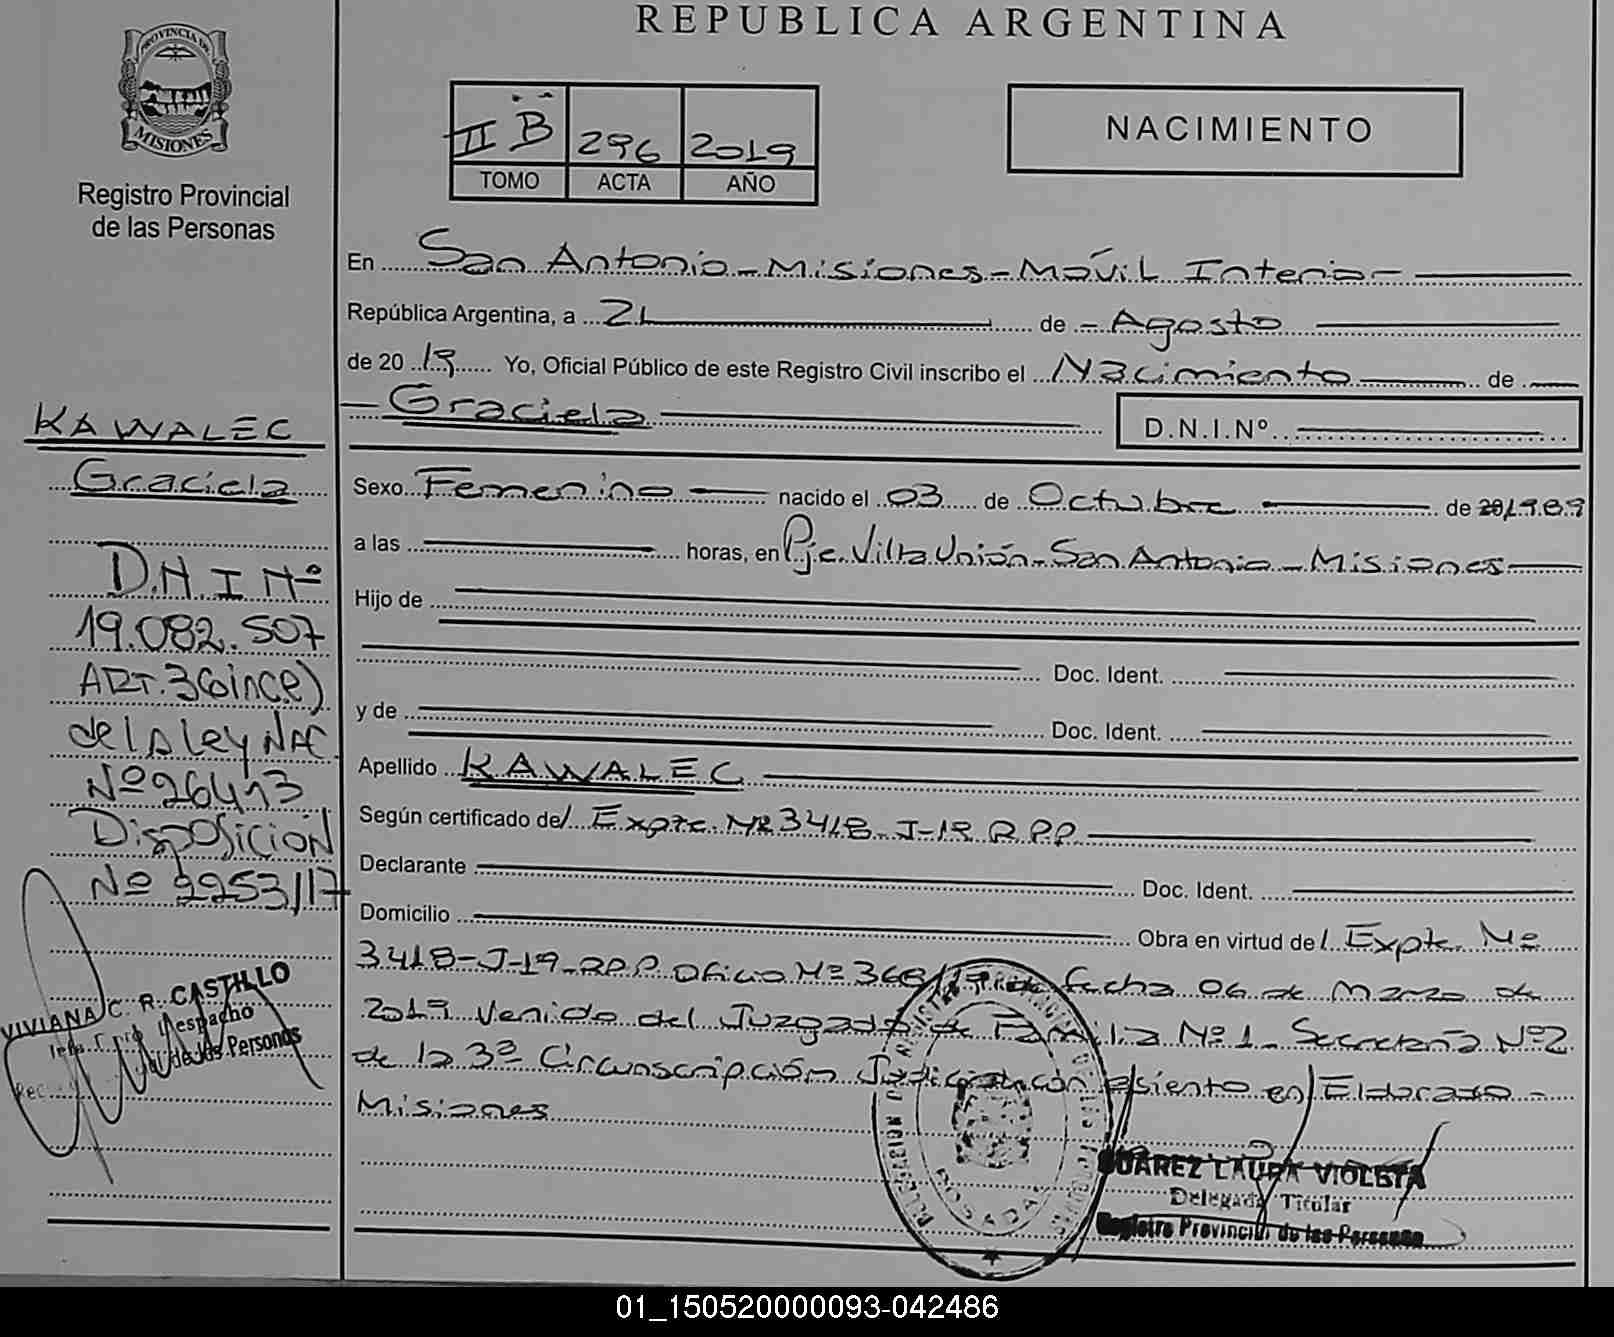 REPUBLICA ARGENTINA
PROVINCIA DE
MISIONES
Registro Provincial
de las Personas
II B 296 2019
TOMO ACTA AÑO
NACIMIENTO
En San Antonio - Misiones - Móvil Interio -
República Argentina, a 21 de - Agosto
de 2019 Yo, Oficial Público de este Registro Civil inscribo el Nacimiento de
- Graciela
D.N.I.Nº
Sexo Femenino nacido el 03 de Octubre de 1989
a las horas, en Pje. Villa Unión - San Antonio - Misiones
Hijo de
Doc. Ident.
y de Doc. Ident.
Apellido KAWALEC
Según certificado del Expte. Nº 3418-J-19 R.P.P.
Declarante Doc. Ident.
Domicilio Obra en virtud del Expte. Nº
3418-J-19-RPP Oficio Nº 368/19 de fecha 06 de Marzo de
2019 Venido del Juzgado de Familia Nº 1 - Secretaría Nº 2
de la 3ª Circunscripción Judicial con asiento en Eldorado -
Misiones
KAWALEC
Graciela
D.N.I Nº
19.082.507
ART. 3 ( 
del A Ley NAC
Nº 26413
Disposición
Nº 2253/17
VIVIANA C. R. CASTILLO
Despacho
de las Personas
POSADAS
SUAREZ LAURA VIOLETA
Delegada Titular
Registro Provincial de las Personas
01_150520000093-042486